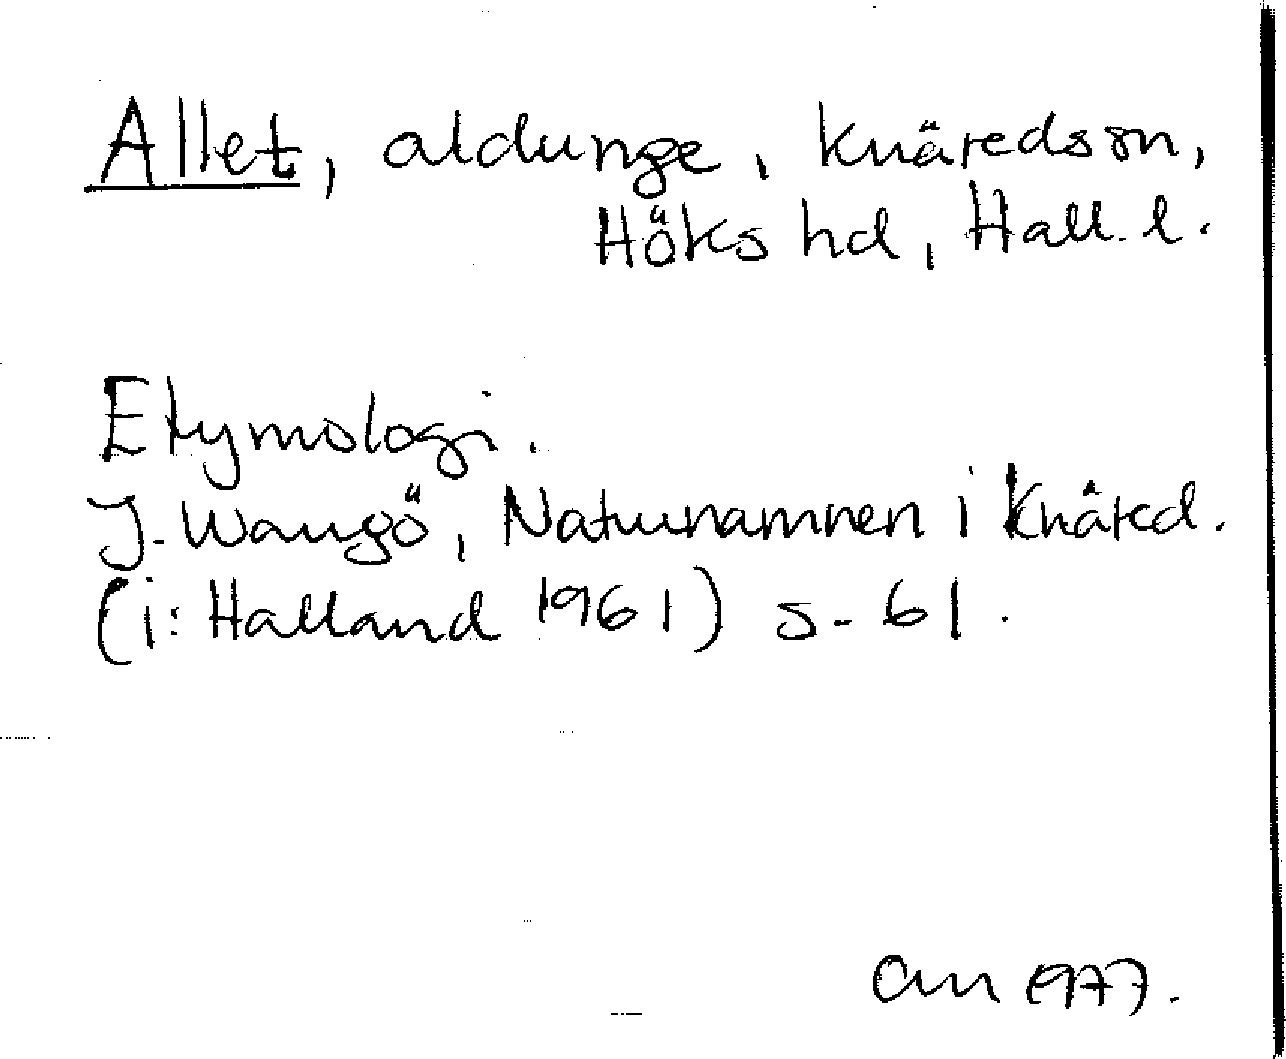 Allet, aldunge, Knäreds sn,
Höks hd, Hall. l.
Etymologi.
J. Wangö, Naturnamnen i Knäred.
(i: Halland 1961) s. 61.
1977.